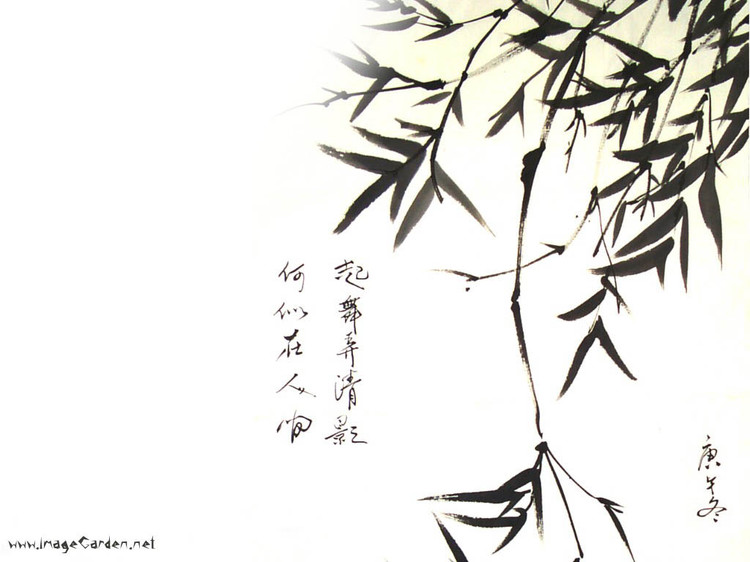 起舞弄清影
何似在人间
庚午冬
www.imageGarden.net